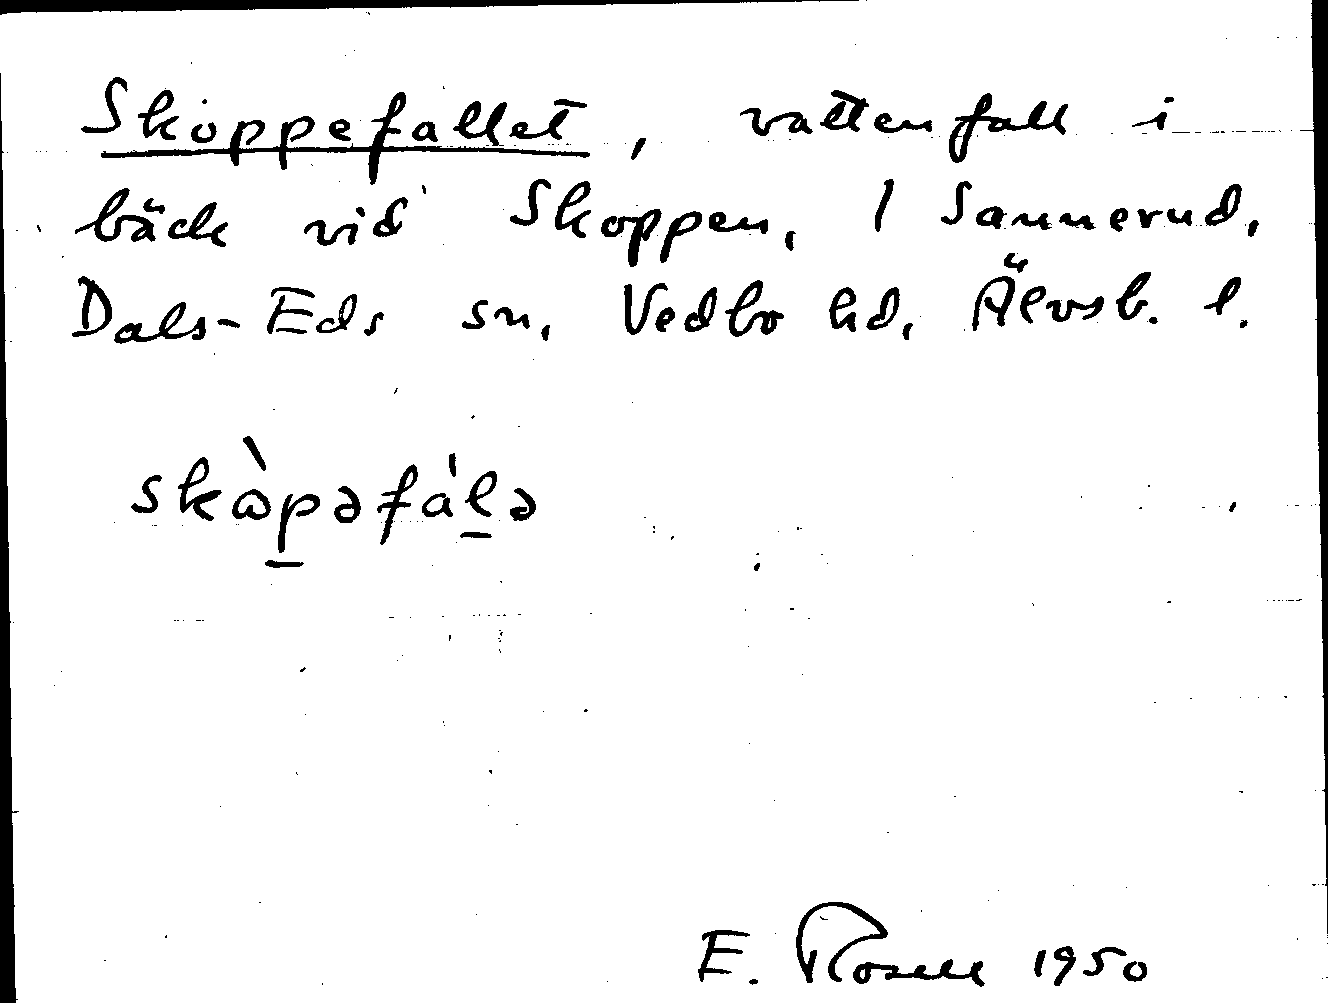 Skoppefallet, vattenfall i
bäck vid Skoppen, 1 Sannerud,
Dals-Eds sn, Vedbo hd, Älvsb. l.
skὼpəfál̲ə
E. Rosell 1950